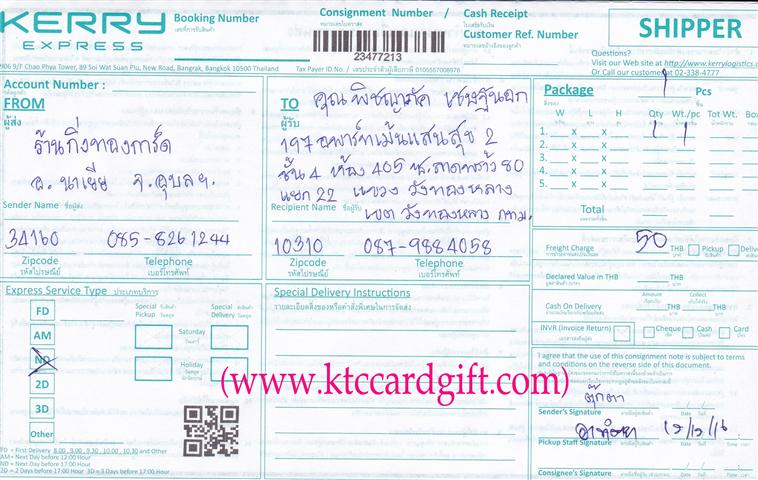 KERRY
EXPRESS
Booking Number
เลขที่การรับสินค้า
Consignment Number /
หมายเลขใบตราส่ง
Cash Receipt
ใบเสร็จรับเงิน
Customer Ref. Number
หมายเลขอ้างอิงของลูกค้า
23477213
SHIPPER
906 9/F Chao Phya Tower, 89 Soi Wat Suan Plu, New Road, Bangrak, Bangkok 10500 Thailand
Tax Payer ID No. / เลขประจำตัวผู้เสียภาษี
Questions?
Visit our Web site at http://www.kerrylogistics.c
Or Call our customer at 02-338-4777
Account Number :
FROM
ผู้ส่ง
ร้านกิ่งทองการ์ด
อ. นาเยีย จ. อุบลฯ.
Sender Name ชื่อผู้ส่ง
34160 085-8261244
Zipcode
รหัสไปรษณีย์
Telephone
เบอร์โทรศัพท์
TO
ผู้รับ
คุณ พิชญาภัค
197 อพาร์ทเม้นแสนสุข 2
ชั้น 4 ห้อง 405 ซ. ลาดพร้าว 80
แยก 22 แขวง วังทองหลาง
Recipient Name ชื่อผู้รับ
เขต วังทองหลาง กทม.
10310 087-9884058
Zipcode
รหัสไปรษณีย์
Telephone
เบอร์โทรศัพท์
Package
1 Pcs
ชิ้น
W L H Qty Wt./pc Tot Wt. Box
1. x x 1 1
2. x x
3. x x
4. x x
5. x x
Total
Freight Charge 50 THB
บาท
Pickup
Delive
Declared Value in THB
THB
บาท
Amount
Collect
Cash On Delivery
THB
บาท
THB
บาท
INVR (Invoice Return)
Cheque
Cash
Card
Express Service Type ประเภทบริการ
FD
AM
ND
2D
3D
Other
Special
Pickup
Special
Delivery
Saturday
วันเสาร์
Holiday
วันหยุด
FD = First Delivery 8.00 , 9.00 , 9.30 , 10.00 , 10.30 and Other
AM= Next Day before 12:00 Hour
ND = Next Day before 17:00 Hour
2D = 2 Days before 17:00 Hour 3D = 3 Days before 17:00 Hour
Special Delivery Instructions
รายละเอียดสิ่งของหรือคำสั่งพิเศษในการจัดส่ง
(www.ktccardgift.com)
I agree that the use of this consignment note is subject to terms
and conditions on the reverse side of this document.
ตุ๊กตา
Sender's Signature ลายมือชื่อผู้ส่งสินค้า Date วันที่
Pickup Staff Signature Date วันที่ Time เวลา
Consignee's Signature Date วันที่ Time เวลา